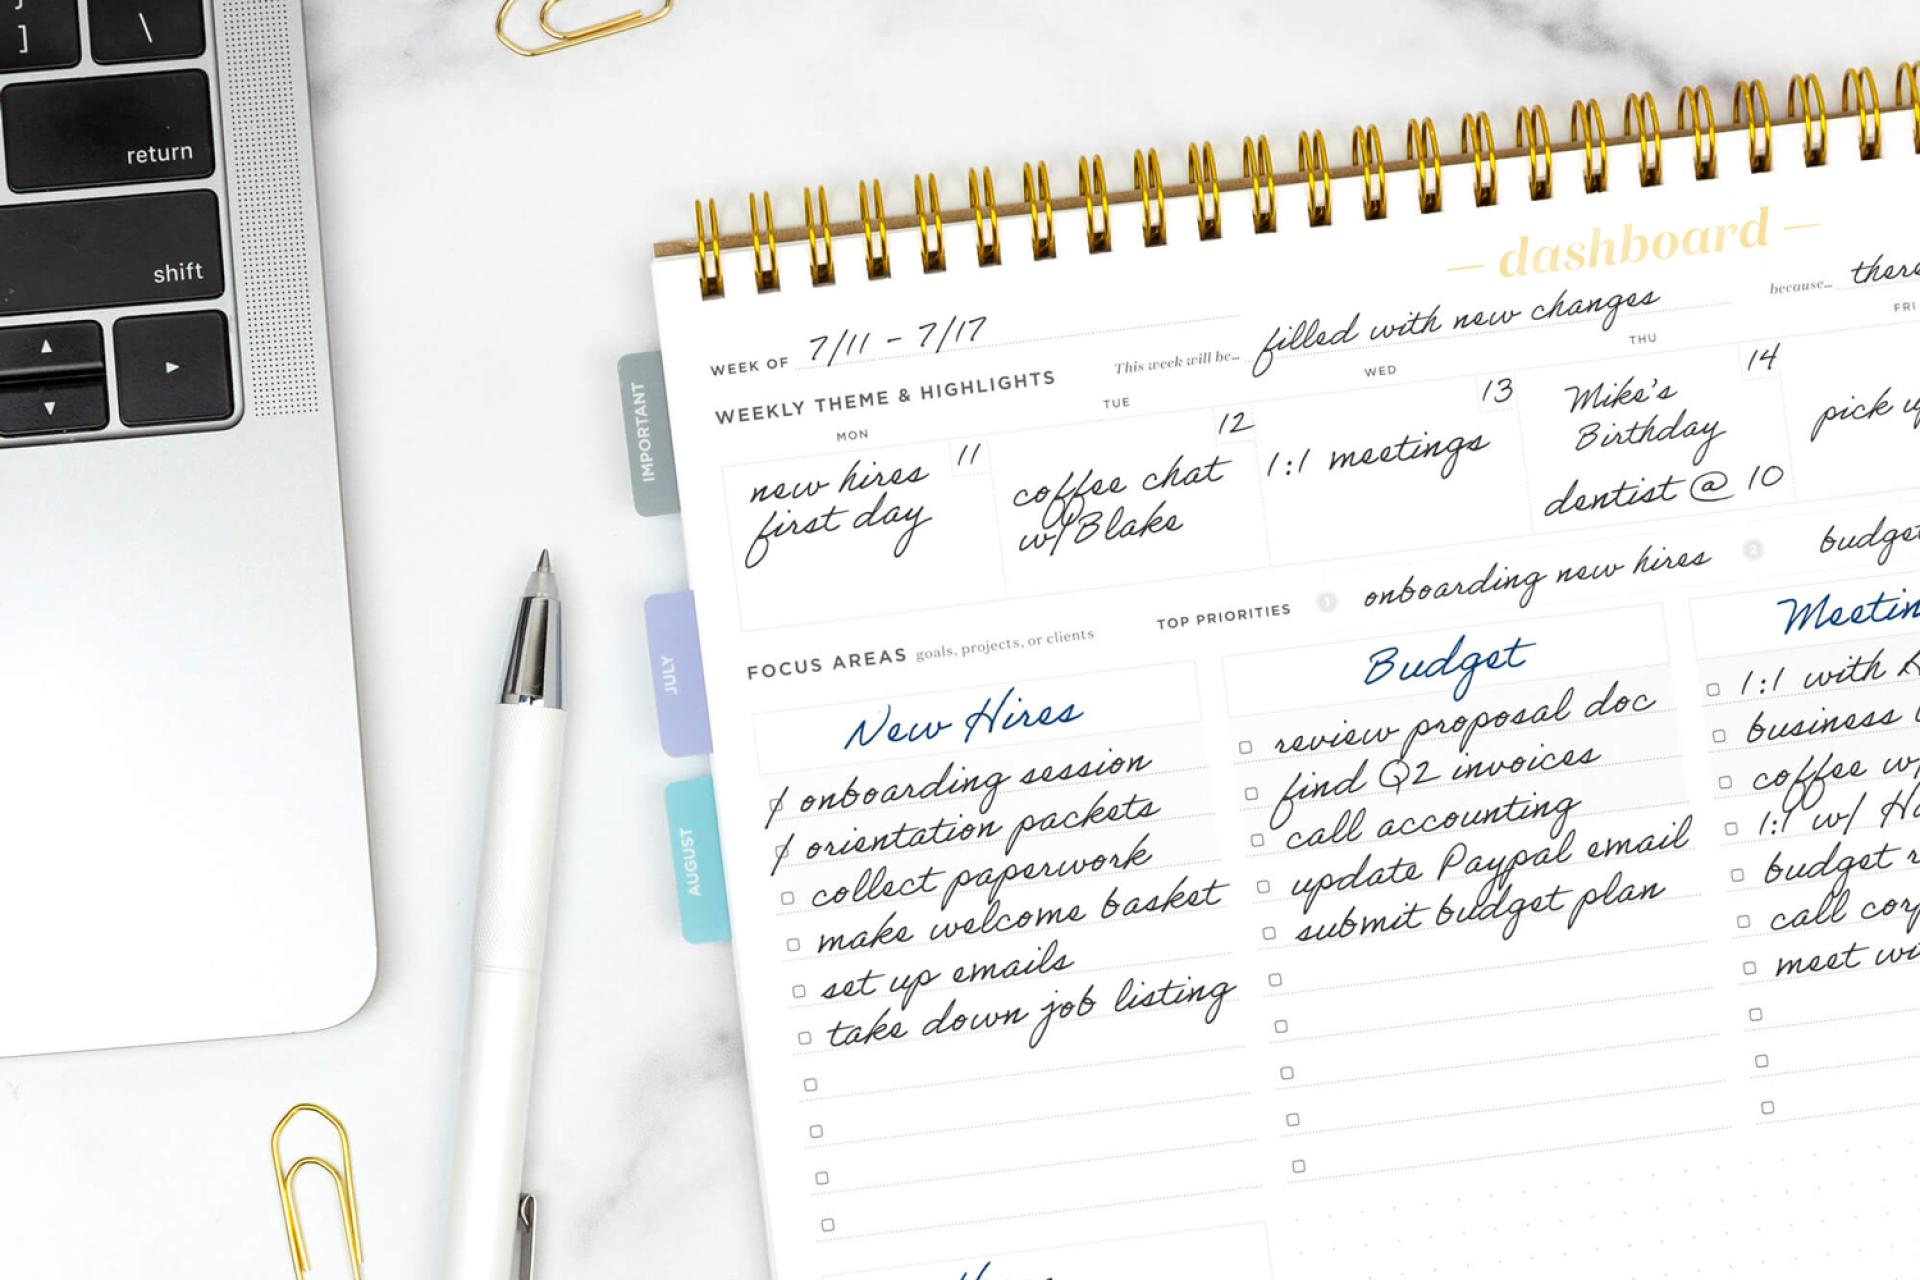 ]
\
return
shift
dashboard
WEEK OF 7/11 - 7/17
This week will be... filled with new changes
because...
WEEKLY THEME & HIGHLIGHTS
MON
TUE
WED
THU
FRI
11
new hires
first day
12
coffee chat
w/ Blake
13
1:1 meetings
14
Mike's
Birthday
dentist @ 10
pick
IMPORTANT
JULY
AUGUST
TOP PRIORITIES 1 onboarding new hires 2 budget
FOCUS AREAS goals, projects, or clients
New Hires
onboarding session
orientation packets
collect paperwork
make welcome basket
set up emails
take down job listing
Budget
review proposal doc
find Q2 invoices
call accounting
update Paypal email
submit budget plan
1:1 with
business
coffee w/
1:1 w/
budget
call
meet